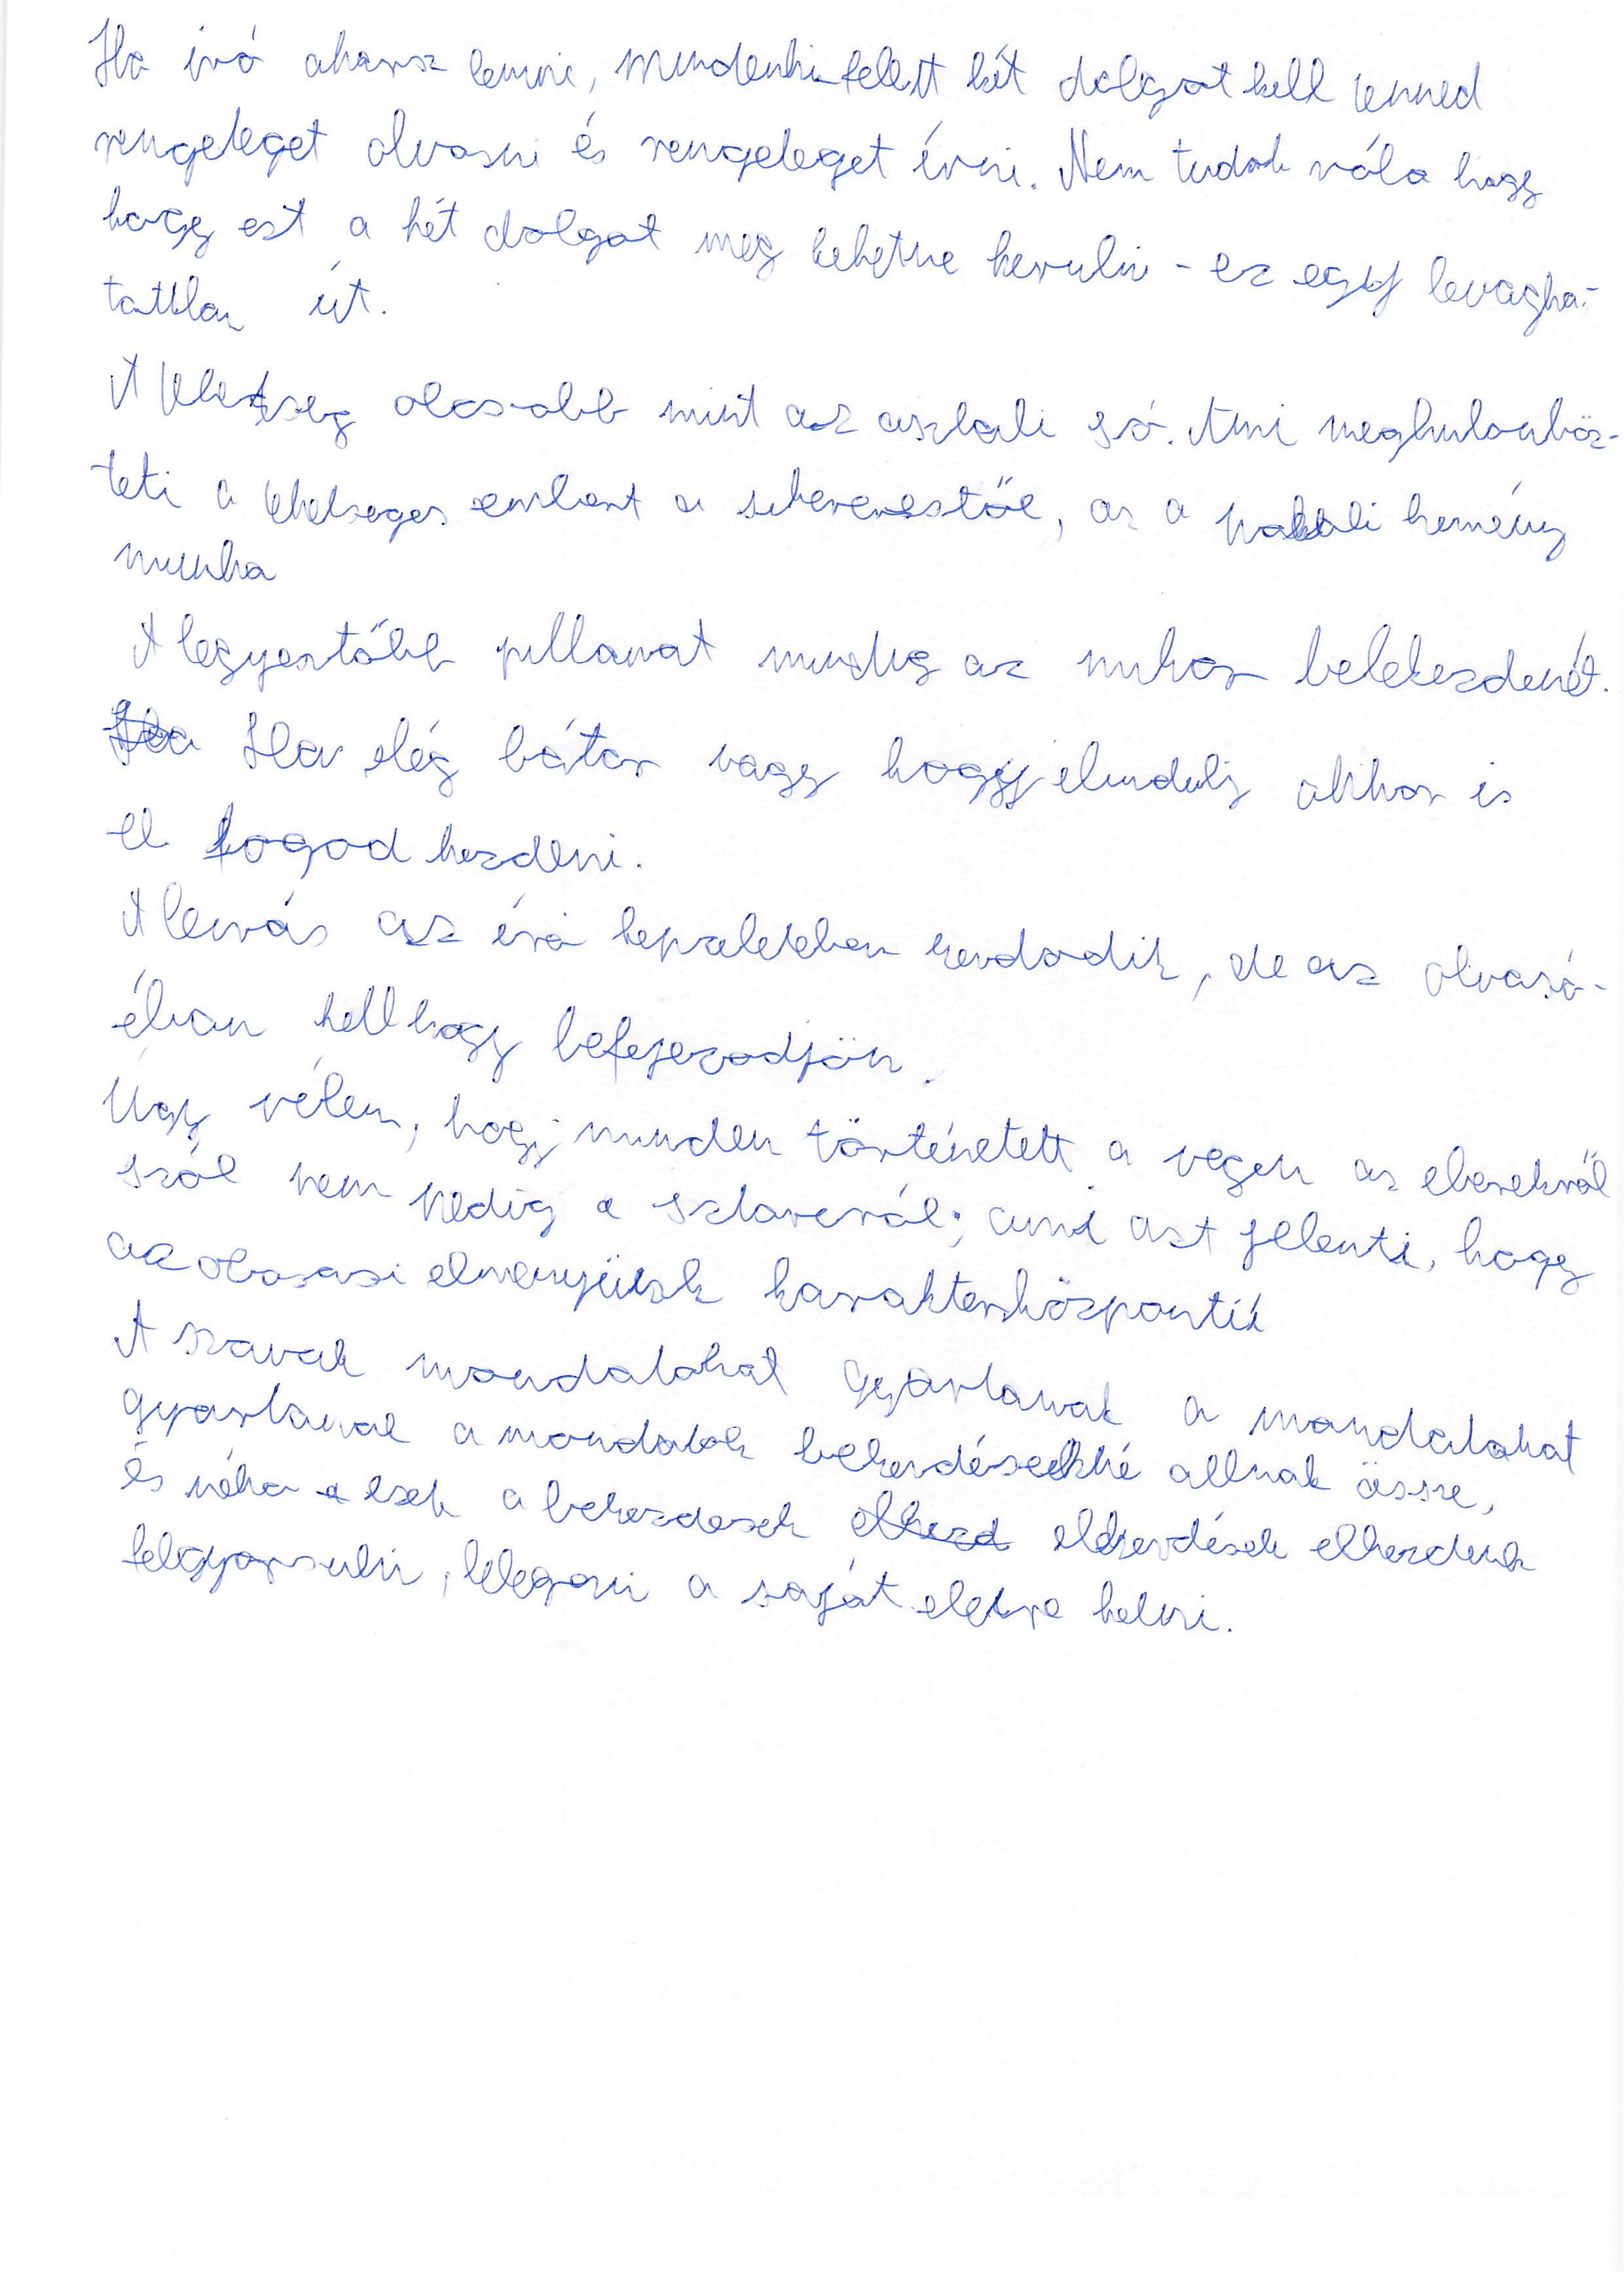 Ha író akarsz lenni, mindenki felett két dolgot kell tenned
rengeteget olvasni és rengeteget írni. Nem tudok róla hogy
hogy ezt a két dolgot meg lehetne kerulni - ez egy levagha-
tattlan út.
A tehetseg olcsobb mint az asztali só. Ami meghulonböz-
teti a tehetseges embert a sikerestől, az a kemény
munka
A legyestőbb pillanat mindig az mikor belekezdenét.
Ha elég bátor vagy hogy elindulj akkor is
el fogod kezdeni.
A leirás az író kepzeleteben kezdodik, de az olvasó-
éban kell hogy befejezodjön.
Ugy vélem, hogy minden történetett a vegen az
szól nem pedig a ami azt jelenti, hogy
az olvasasi elmenyünk karakterközponti
A szavak mondatokat gyartanak a mondatokat
gyartanak a mondatok bekezdésekké allnak össze,
és néha ezek a bekezdesek elkezd elkezdések elkezdenek
felgyorsulni, lelegzni a saját eletre kelni.